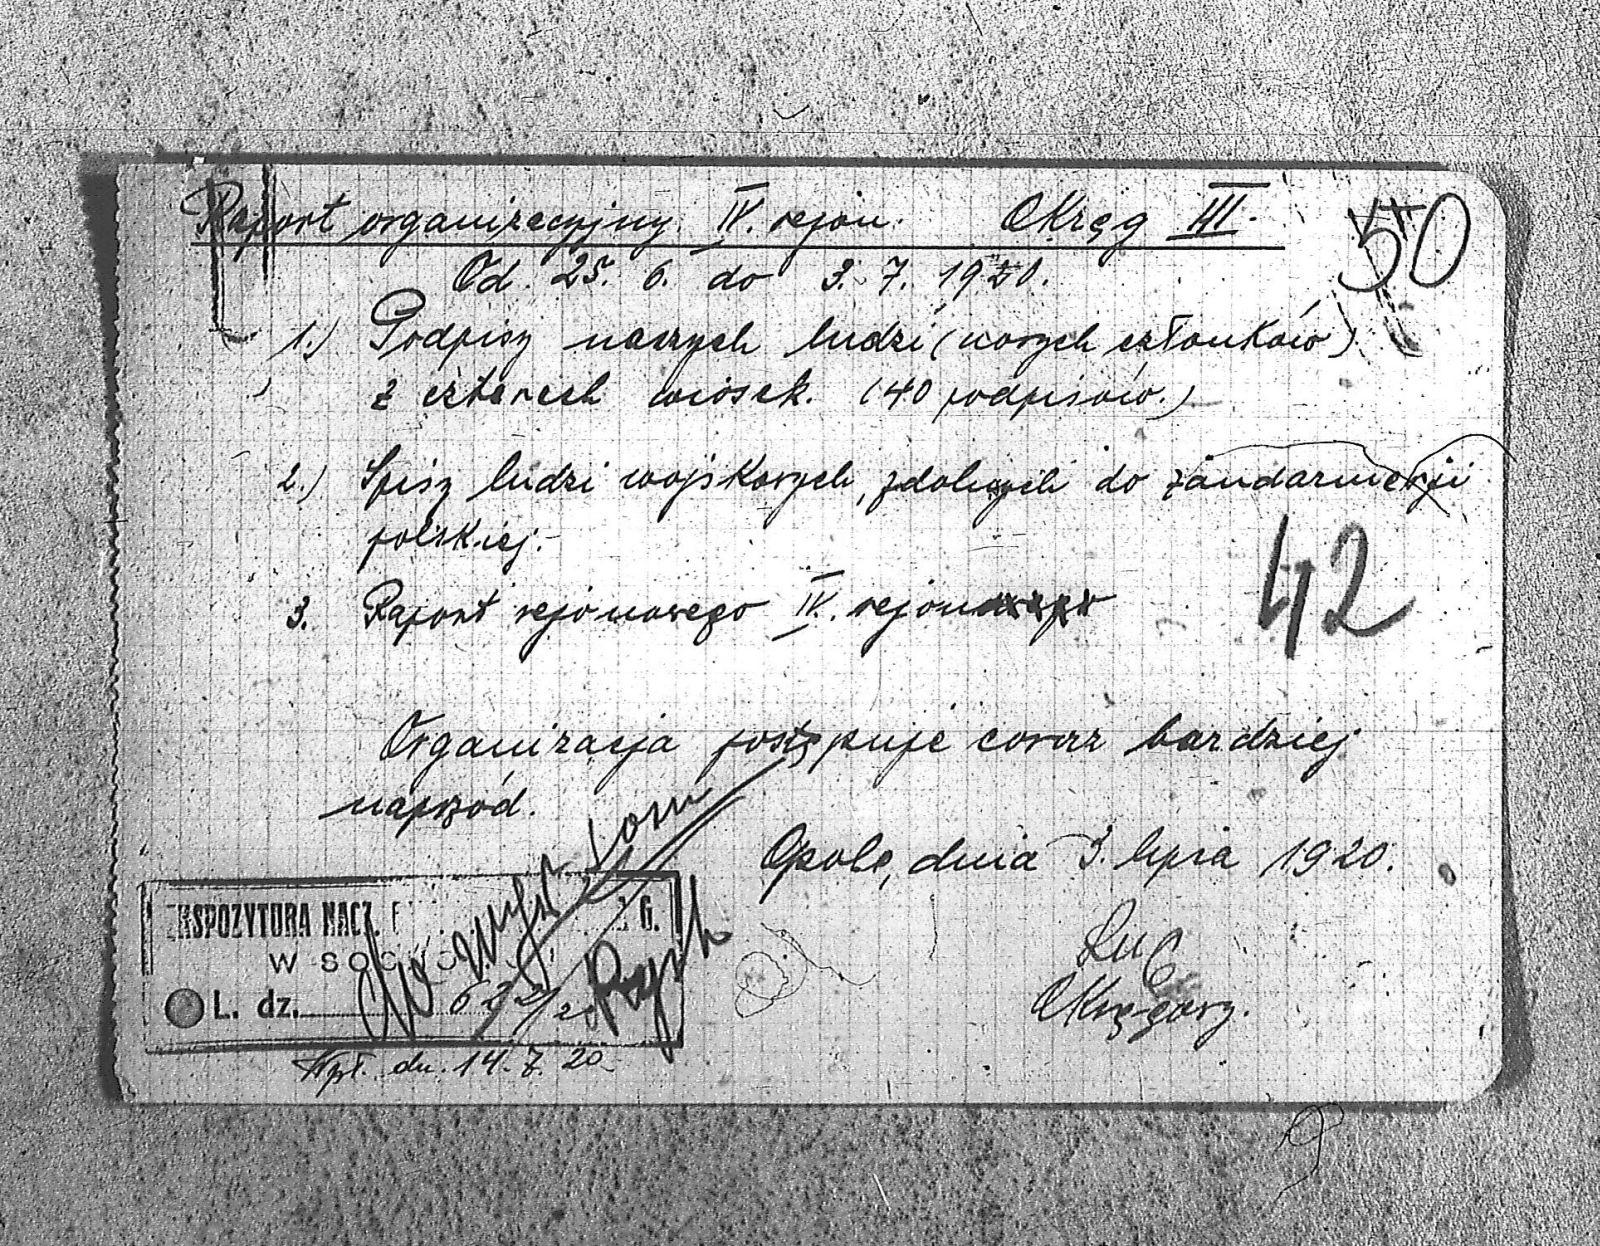 Raport organizacyjny IV. rejon. Okręg III.
50
Od. 25. 6. do 3. 7. 1920.
1.) Podpisy naszych ludzi (nowych członków)
z czterech wiosek. (40 podpisów.)
2.) Spisy ludzi wojskowych, zdolnych do żandarmerji
polskiej.
42
3. Raport rejonowego IV. rejonu
Organizacja postępuje coraz bardziej
naprzód.
Opole, dnia 3. lipca 1920.
EKSPOZYTURA NACZ. G.
W SOC
L. dz. 622/20
Okręgowy.
Wpł. dn. 14. 7. 20